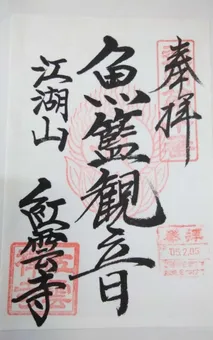 奉拝
魚籃観音
江湖山
紅雲寺
奉拝